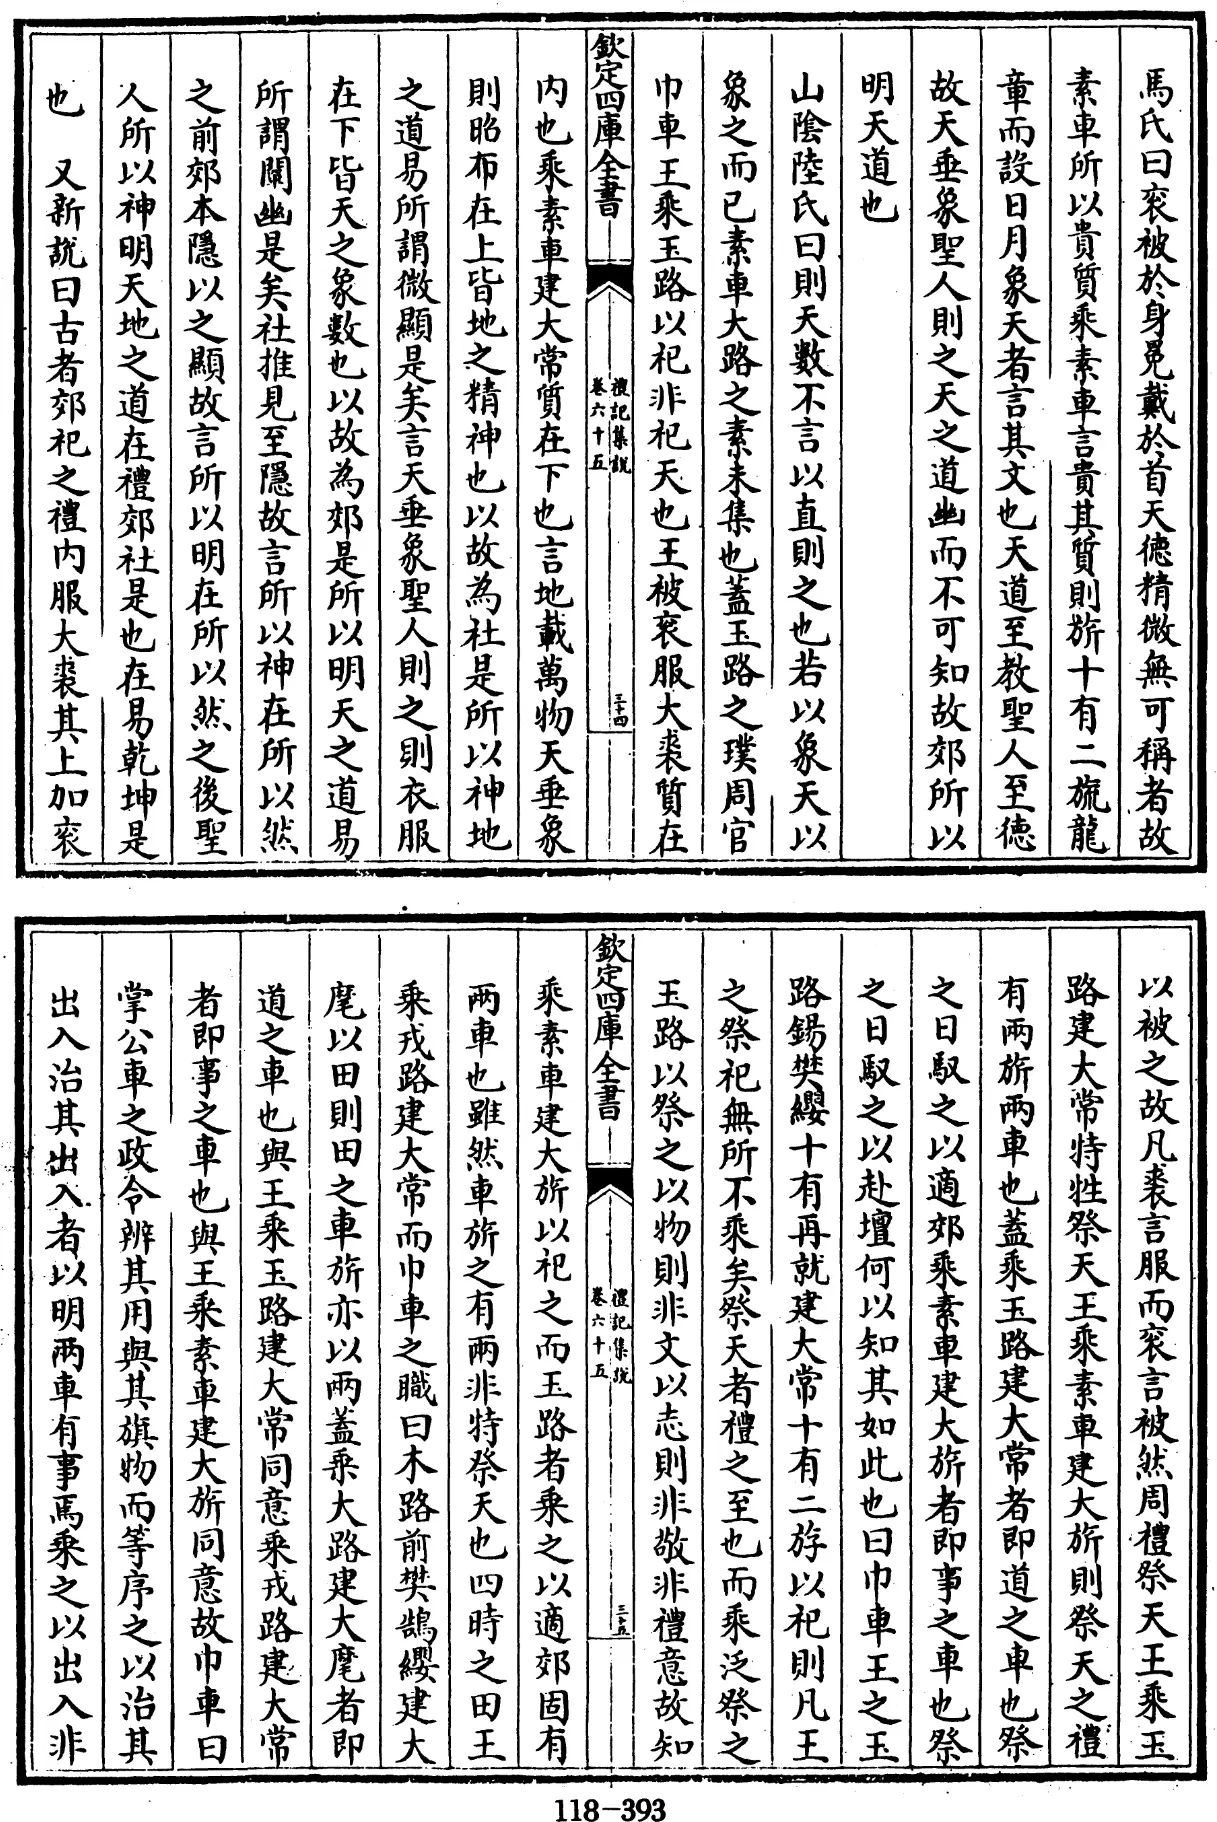 馬氏曰衮被於身冕戴於首天德精微無可稱者故
素車所以貴質乘素車言貴其質則旂十有二旒龍
章而設日月象天者言其文也天道至教聖人至德
故天垂象聖人則之天之道幽而不可知故郊所以
明天道也
山陰陸氏曰則天數不言以直則之也若以象天以
象之而已素車大路之素未集也蓋玉路之璞周官
巾車王乘玉路以祀非祀天也王被衮服大裘質在
欽定四庫全書
禮記集說
卷六十五
三十四
内也乘素車建大常質在下也言地載萬物天垂象
則昭布在上皆地之精神也以故為社是所以神地
之道易所謂微顯是矣言天垂象聖人則之則衣服
在下皆天之象數也以故為郊是所以明天之道易
所謂闡幽是矣社推見至隱故言所以神在所以然
之前郊本隱以之顯故言所以明在所以然之後聖
人所以神明天地之道在禮郊社是也在易乾坤是
也　又新說曰古者郊祀之禮内服大裘其上加衮
以被之故凡裘言服而衮言被然周禮祭天王乘玉
路建大常特牲祭天王乘素車建大旂則祭天之禮
有兩旂兩車也蓋乘玉路建大常者即道之車也祭
之日馭之以適郊乘素車建大旂者即事之車也祭
之日馭之以赴壇何以知其如此也曰巾車王之玉
路鍚樊纓十有再就建大常十有二斿以祀則凡王
之祭祀無所不乘矣祭天者禮之至也而乘泛祭之
玉路以祭之以物則非文以志則非敬非禮意故知
欽定四庫全書
禮記集說
卷六十五
三十五
乘素車建大旂以祀之而玉路者乘之以適郊固有
兩車也雖然車旂之有兩非特祭天也四時之田王
乘戎路建大常而巾車之職曰木路前樊鵠纓建大
麾以田則田之車旂亦以兩蓋乘大路建大麾者即
道之車也與王乘玉路建大常同意乘戎路建大常
者即事之車也與王乘素車建大旂同意故巾車曰
掌公車之政令辨其用與其旗物而等序之以治其
出入治其出入者以明兩車有事焉乘之以出入非
118-393